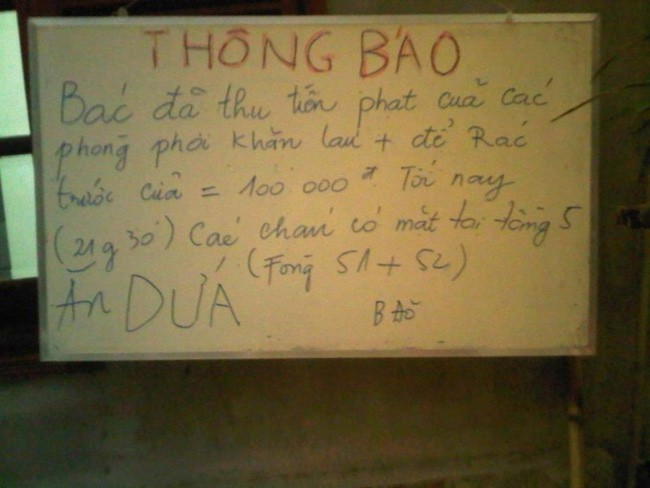 THÔNG BÁO
Bác đã thu tiền phạt của các
phòng phơi khăn lau + để Rác
trước cửa = 100 000đ Tối nay
(21g30') Các cháu có mặt tại tầng 5
(Fòng 51 + 52)
Ăn DƯA
BẢO